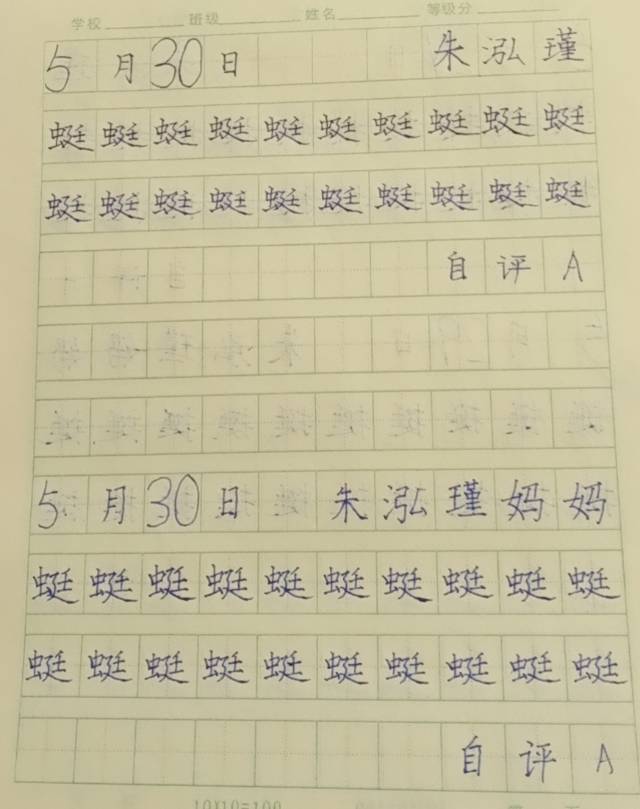 学校 班级 姓名 等级分
5月30日 朱泓瑾
蜓蜓蜓蜓蜓蜓蜓蜓蜓蜓
蜓蜓蜓蜓蜓蜓蜓蜓蜓蜓
自评A
5月30日 朱泓瑾妈妈
蜓蜓蜓蜓蜓蜓蜓蜓蜓蜓
蜓蜓蜓蜓蜓蜓蜓蜓蜓蜓
自评A
10X10=100